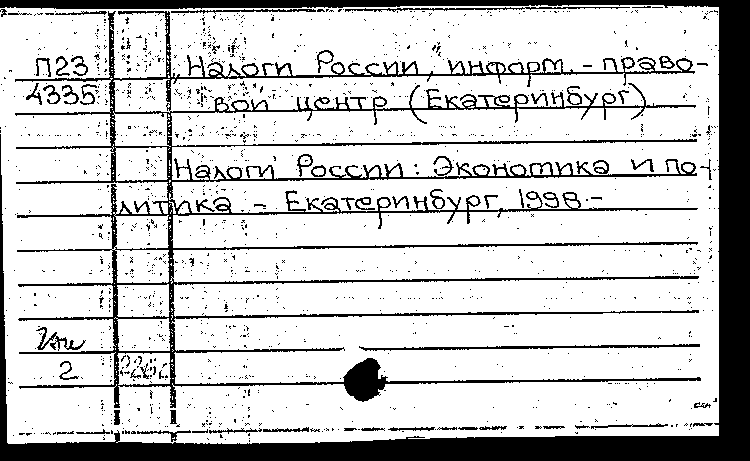 П23 „Налоги России", информ.-право-
4335 вой центр (Екатеринбург)
Налоги России: Экономика и по-
литика. - Екатеринбург, 1998.-
2